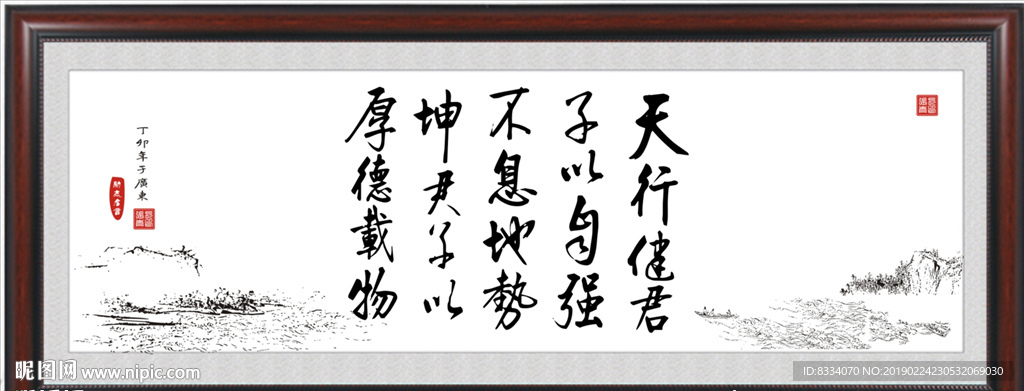 天行健君
子以自强
不息地勢
坤君子以
厚德載物
丁卯年于廣東
昵图网 www.nipic.com
ID:8334070 NO:20190224230532069030